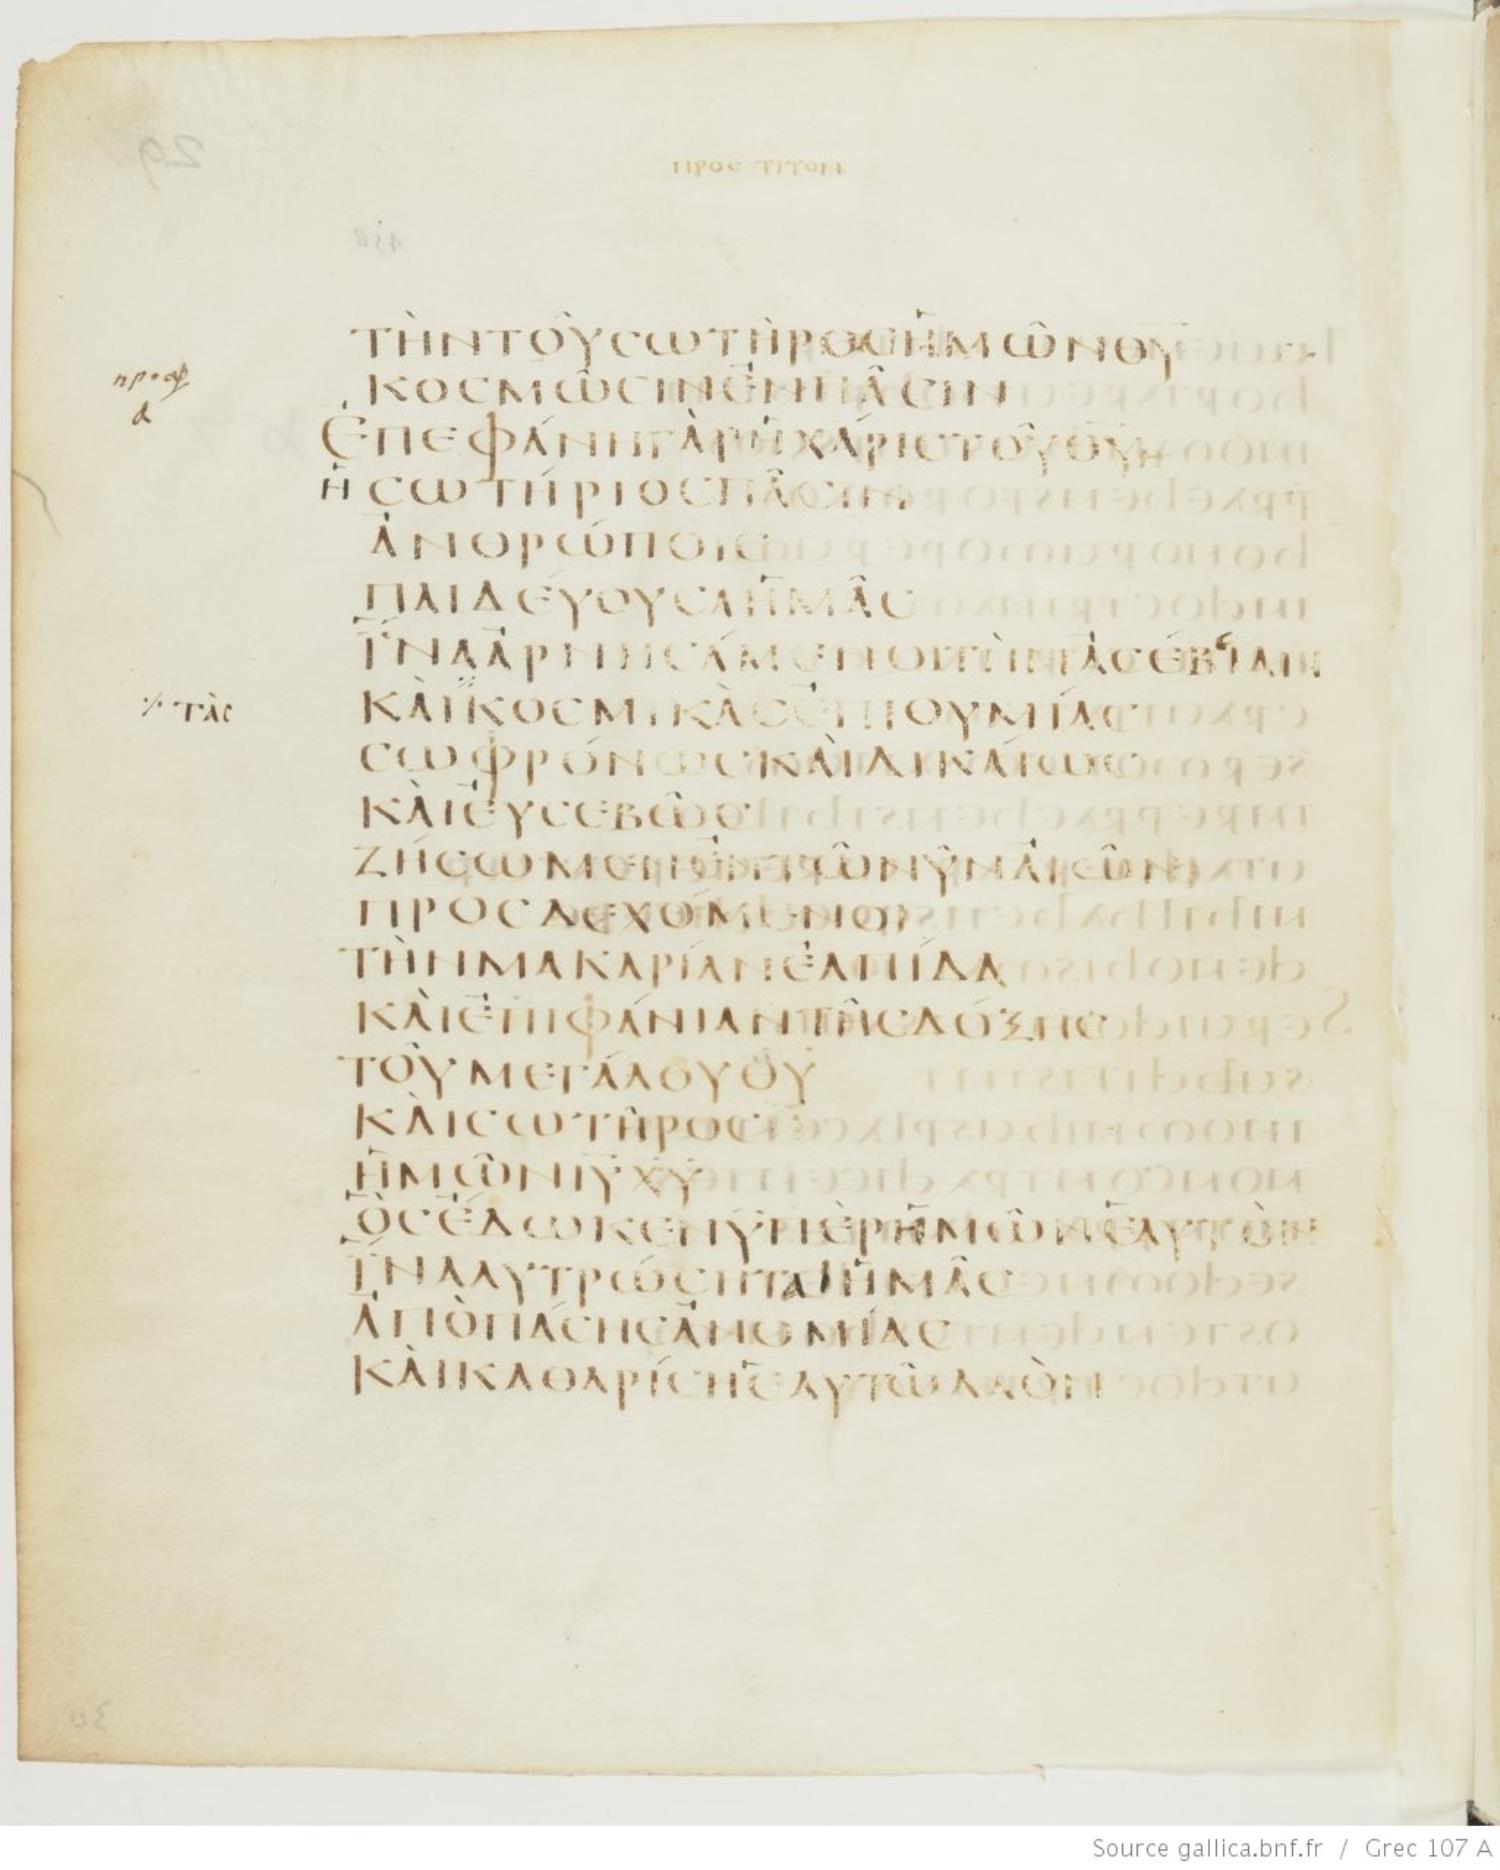 ΠΡΟΣ ΤΙΤΟΝ
ΤῊΝΤΟΥ͂ϹΩΤΗ͂ΡΟϹἩΜΩ͂ΝΘΥ
ΚΟϹΜΩ͂ϹΙΝἘΝΠΑ͂ϹΙΝ
ἘΠΕΦΆΝΗΓᾺΡἩΧΆΡΙϹΤΟΥ͂ΘΥ
ἩϹΩΤΉΡΙΟϹΠΑ͂ϹΙΝ
ἈΝΘΡΏΠΟΙϹ
ΠΑΙΔΕΎΟΥϹΑἩΜΑ͂Ϲ
ἽΝΑἈΡΝΗϹΆΜΕΝΟΙΤῊΝἈϹΈΒΙΑΝ
ΚᾺΙΚΟϹΜΙΚᾺϹἘΠΙΘΥΜΊΑϹ
ϹΩΦΡΌΝΩϹΚᾺΙΔΙΚΆΙΩϹ
ΚᾺΙΕΥϹΕΒΩ͂Ϲ
ΖΉϹΩΜΕΝἘΝΤΩ͂ΝΥ͂ΝΑἸΩ͂ΝΙ
ΠΡΟϹΔΕΧΌΜΕΝΟΙ
ΤῊΝΜΑΚΑΡΊΑΝἘΛΠΊΔΑ
ΚᾺΙἘΠΙΦΆΝΙΑΝΤΗ͂ϹΔΌΞΗϹ
ΤΟΥ͂ΜΕΓΆΛΟΥΘΥ
ΚᾺΙϹΩΤΗ͂ΡΟϹ
ἩΜΩ͂ΝΙΥΧΥ
ὋϹἜΔΩΚΕΝὙΠῈΡἩΜΩ͂ΝἙΑΥΤῸΝ
ἽΝΑΛΥΤΡΏϹΗΤΑΙἩΜΑ͂Ϲ
ἈΠῸΠΆϹΗϹἈΝΟΜΊΑϹ
ΚᾺΙΚΑΘΑΡΊϹΗἙΑΥΤΩ͂ΛΑῸΝ
⁒ ΤᾺϹ
Source gallica.bnf.fr / Grec 107 A